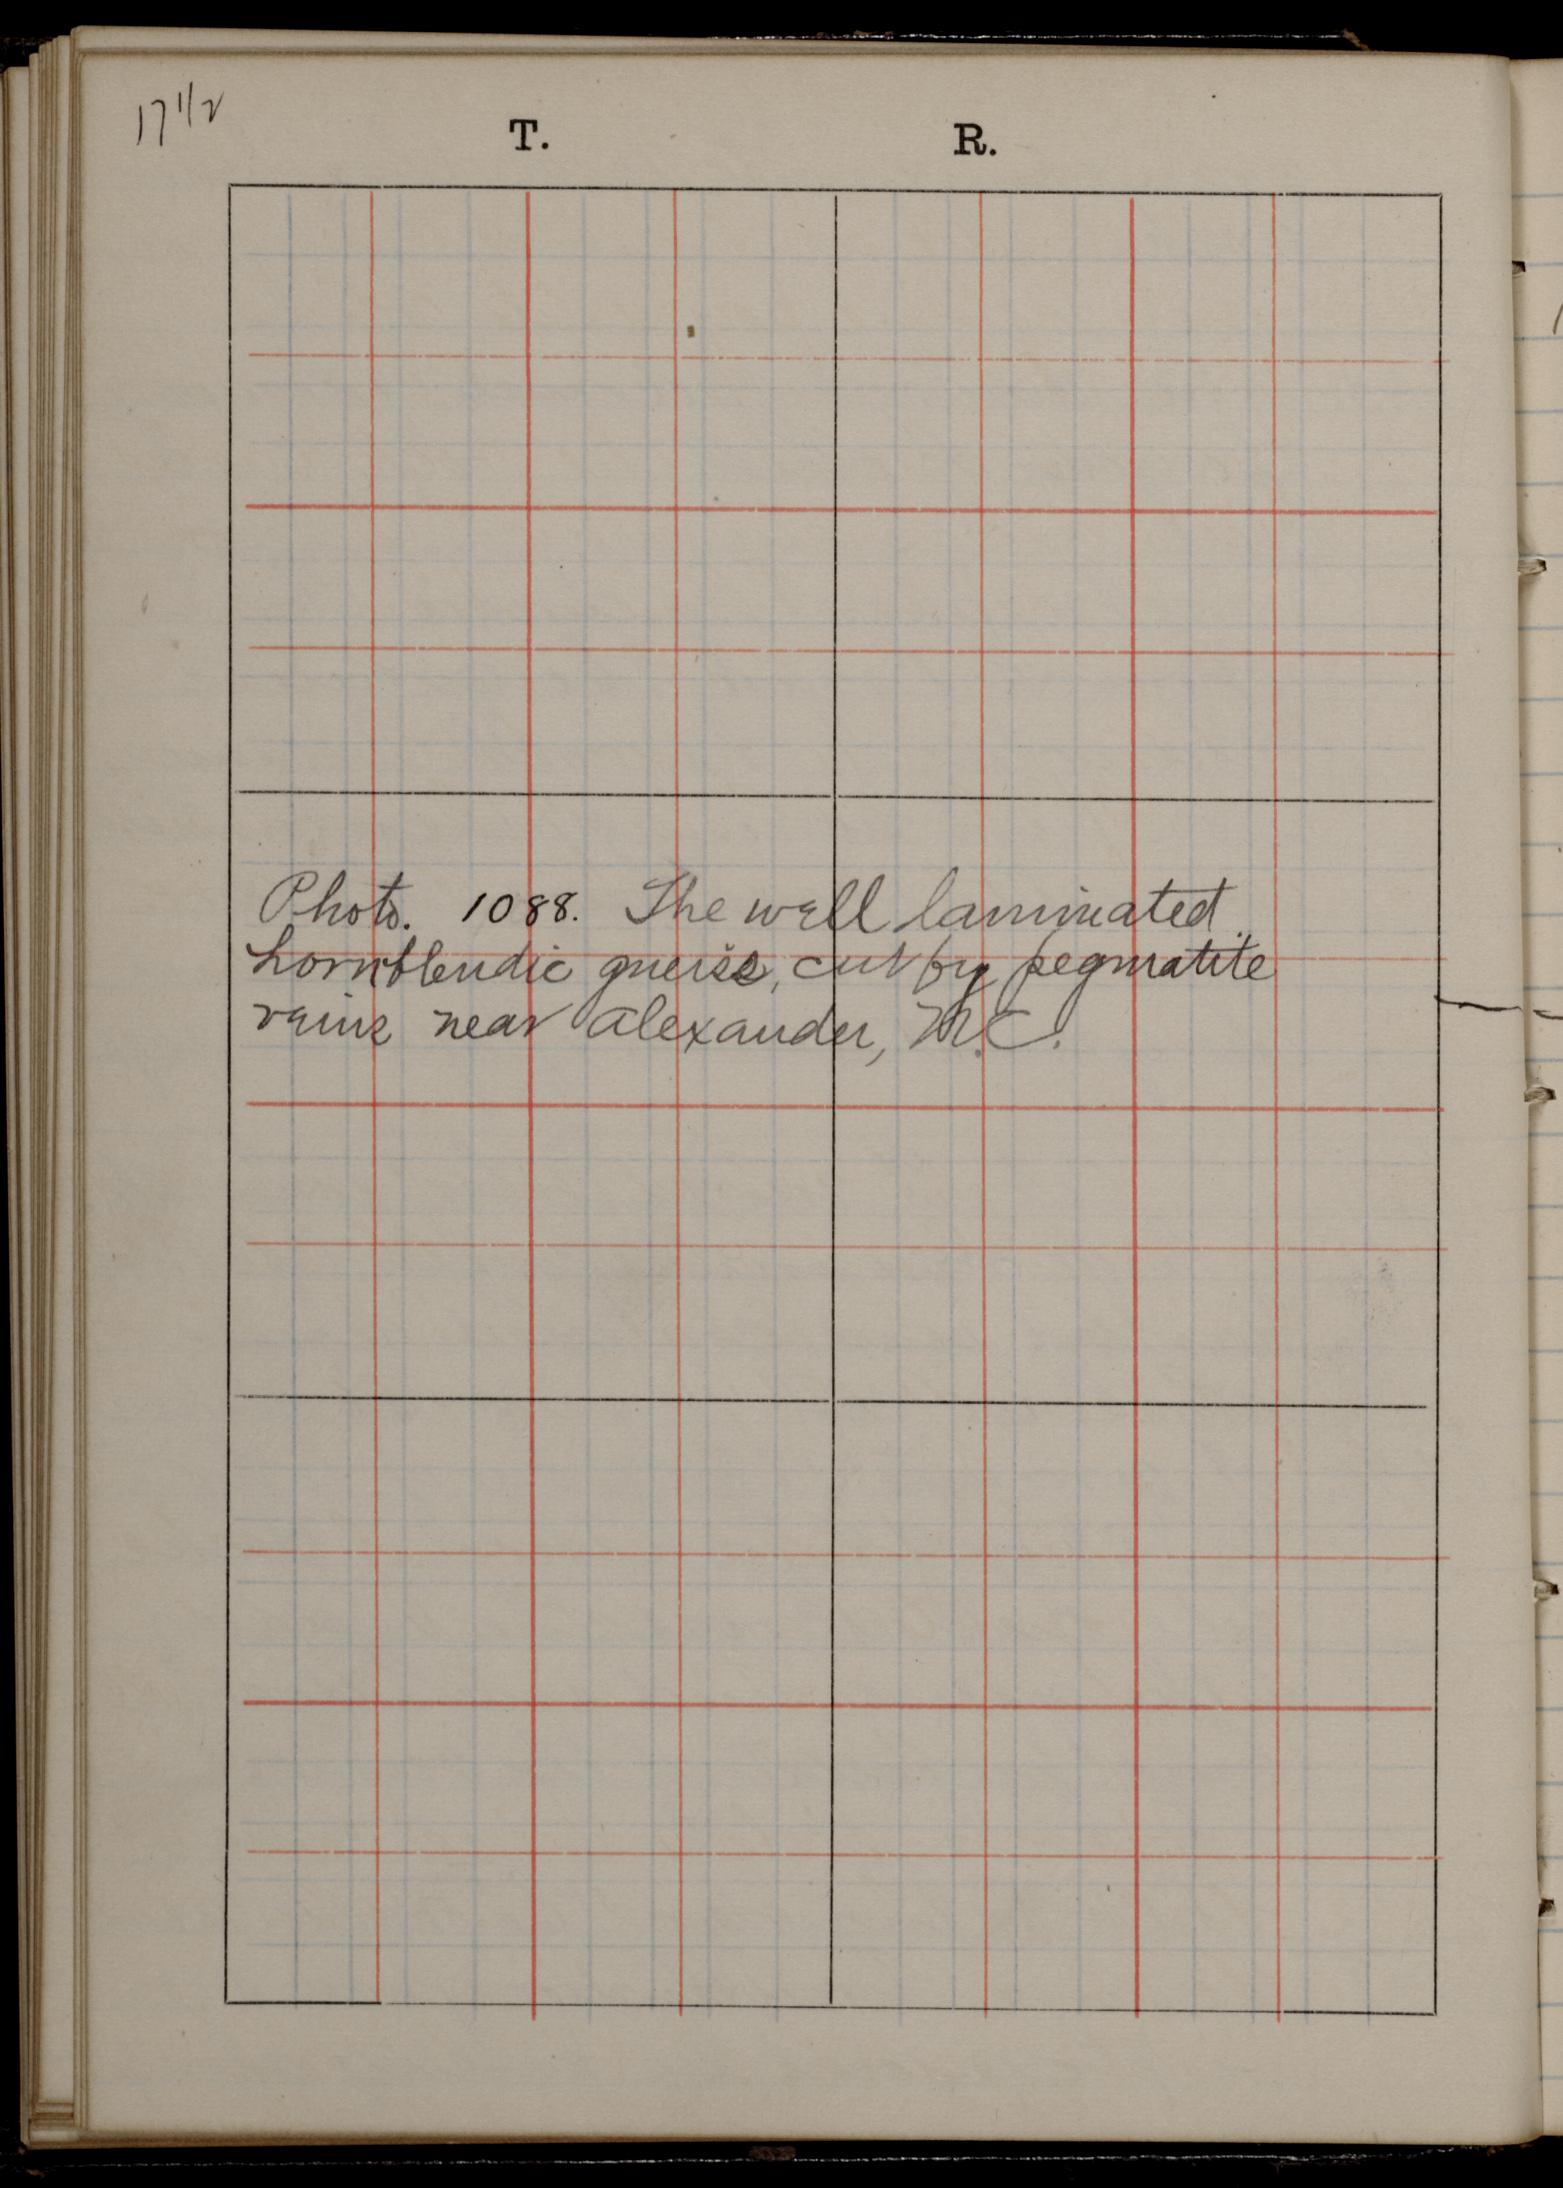 17 1/2
T. R.
Photo. 1088. The well laminated
hornblendic gneiss, cut by pegmatite
veins near Alexander, N.C.